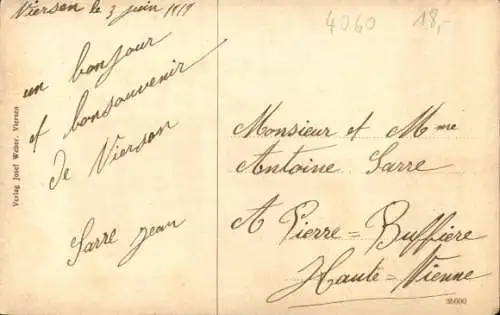 Viersen le 3 juin 1919
un bonjour
et bonsouvenir
de Vierson
Sarre Jean
Verlag Josef Weber, Viersen
4060 18,-
Monsieur et Mme
Antoine Sarre
A Pierre=Buffière
Haute=Vienne